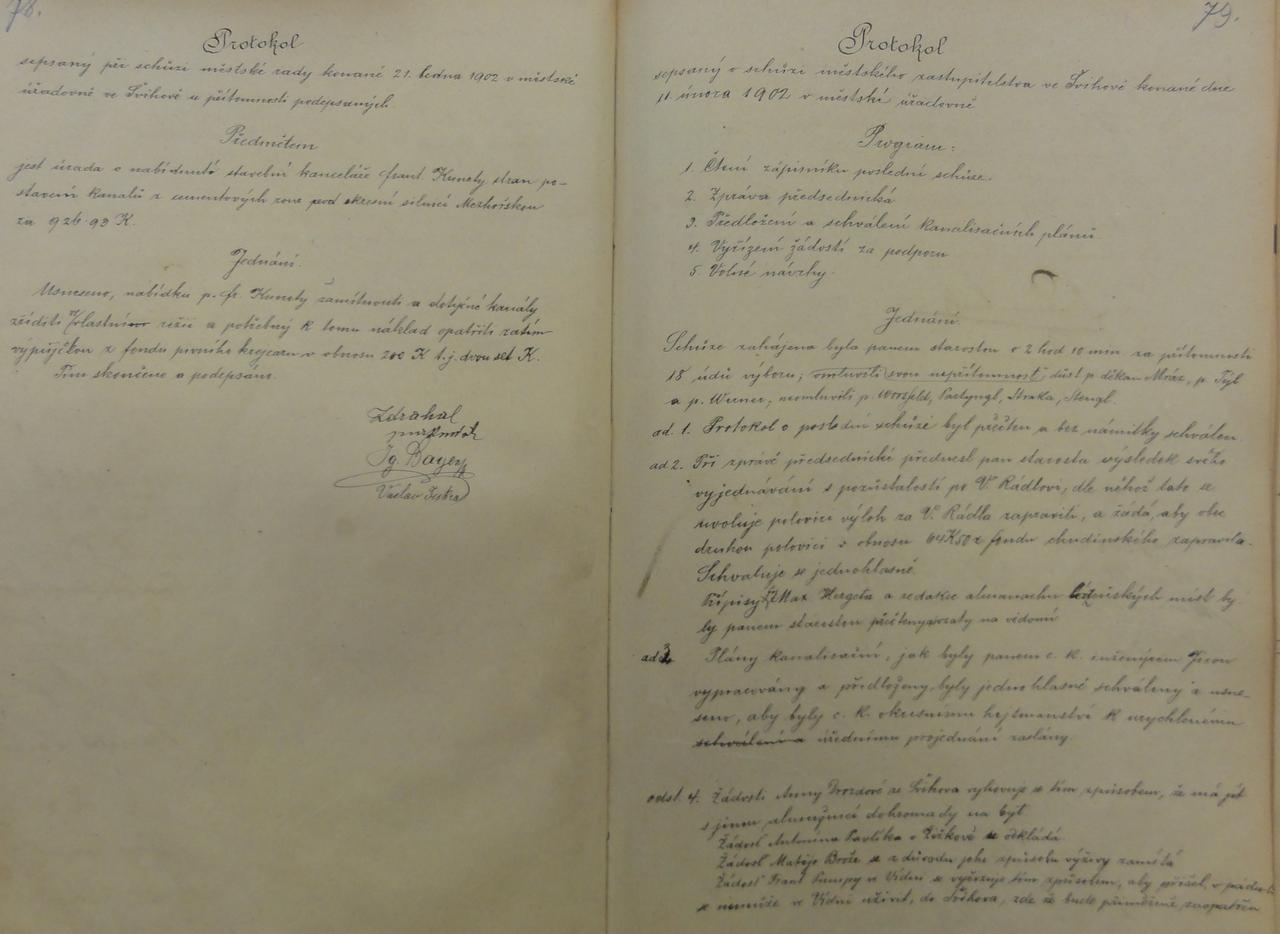 78.
Protokol
sepsaný při schůzi městské rady konané 21. ledna 1902 v městské
úřadovně ve Švihově u přítomnosti podepsaných.
Předmětem
jest úrada o nabídnutí stavební kanceláře Frant. Kunesty stran po-
stavení kanálů z cementových rour pod okresní silnicí Mezhořskou
za 926.93 K.
Jednání.
Usneseno, nabídku p. Fr. Kunesty zamítnouti a dotyčné kanály
zříditi ve vlastní režii a potřebný k tomu náklad opatřiti zatím
výpůjčkou z fondu pivního krejcaru v obnosu 200 K t.j. dvou set K.
Tím skončeno a podepsáno.
Zdrahal
Ig. Bayer
Václav
79.
Protokol
sepsaný o schůzi městského zastupitelstva ve Švihově konané dne
11 února 1902 v městské úřadovně
Program:
1. Čtení zápisníku poslední schůze.
2. Zpráva předsednická
3. Předložení a schválení kanalisačních plánů.
4. Vyřízení žádostí za podporu
5. Volné návrhy.
Jednání.
Schůze zahájena byla panem starostou o 2 hod 10 min. za přítomnosti
18 údů výboru; omluvili svou nepřítomnost důst p. děkan Mráz, p. Týl
a p. Werner; neomluvili p. Worsfeld, Partyngl, Straka, Stengl.
ad. 1. Protokol o poslední schůzi byl přečten a bez námitky schválen.
ad 2. Při zprávě předsednické přednesl pan starosta výsledek svého
vyjednávání s pozůstalostí po V. Rádlovi, dle něhož tato se
uvoluje polovici výloh za V. Rádla zapraviti, a žádá, aby obec
druhou polovici v obnosu 64K50 z fondu chudinského zapravila.
Schvaluje se jednohlasně.
Přípisy Max Hergeta a redakce almanachu lázeňských míst by-
ly panem starostou přečteny a vzaty na vědomí
ad 3. Plány kanalisační, jak byly panem c. k. inženýrem
vypracovány a předloženy, byly jednohlasně schváleny a usne-
seno, aby byly c. k. okresnímu hejtmanství k urychlenému
schválení a úřednímu projednání zaslány.
odst. 4. Žádosti Anny Drozdové ze Švihova vyhovuje se tím způsobem, že má jít
s jinou alumnicí dohromady na byt.
Žádost Antonína Pavlíka o Žižkově se odkládá
Žádost Matěje Brože se z důvodu jeho způsobu výživy zamítá
Žádost Frant Pumpy ve Vídni se vyřizuje tím způsobem, aby přišel, v pádu
se nemůže ve Vídni uživit, do Švihova, zde že bude přiměřeně zaopatřen